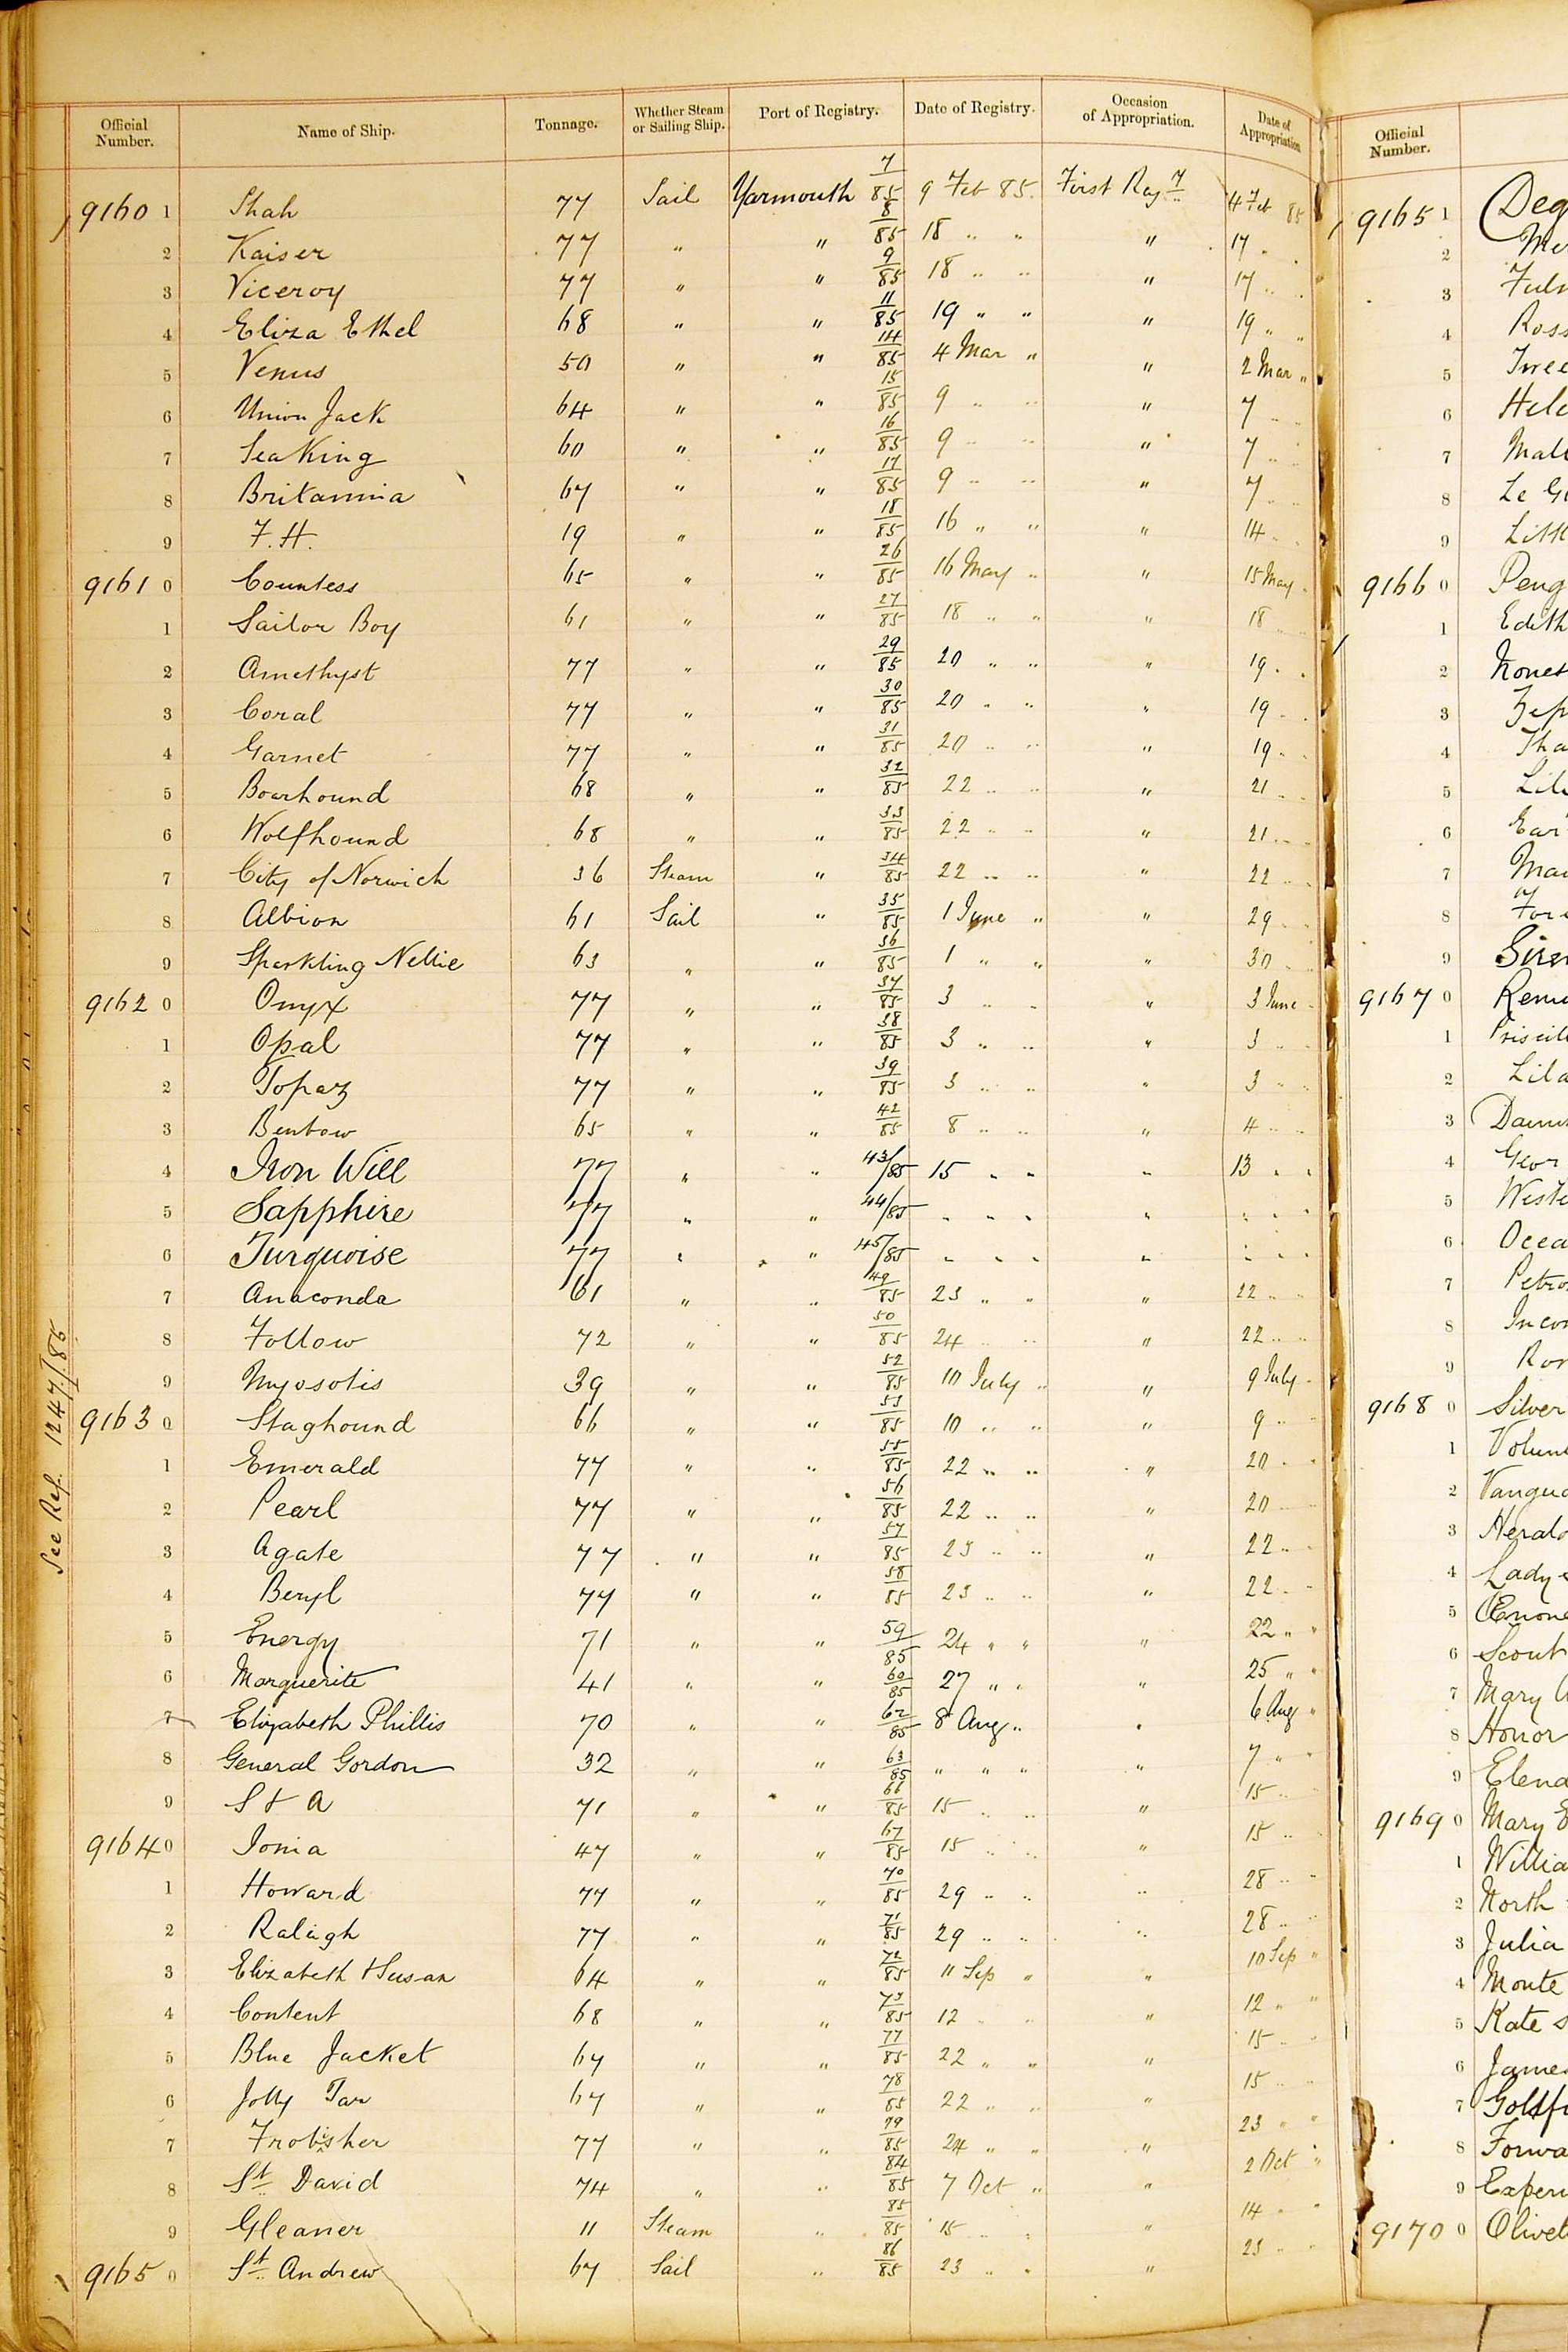 Official Number. Name of Ship. Tonnage. Whether Steam or Sailing Ship. Port of Registry. Date of Registry. Occasion of Appropriation. Date of Appropriation
9160 1 Shah 77 Sail Yarmouth 7/85 9 Feb 85. First Regy 4 Feb 85
2 Kaiser 77 " " 8/85 18 " " " 17 " "
3 Viceroy 77 " " 9/85 18 " " " 17 " "
4 Eliza Ethel 68 " " 11/85 19 " " " 19 " "
5 Venus 50 " " 14/85 4 Mar " " 2 Mar "
6 Union Jack 64 " " 15/85 9 " " " 7 " "
7 Sea King 60 " " 16/85 9 " " " 7 " "
8 Britannia 67 " " 17/85 9 " " " 7 " "
9 F. H. 19 " " 18/85 16 " " " 14 " "
9161 0 Countess 65 " " 26/85 16 May " " 15 May "
1 Sailor Boy 61 " " 27/85 18 " " " 18 " "
2 Amethyst 77 " " 29/85 20 " " " 19 " "
3 Coral 77 " " 30/85 20 " " " 19 " "
4 Garnet 77 " " 31/85 20 " " " 19 " "
5 Boarhound 68 " " 32/85 22 " " " 21 " "
6 Wolfhound 68 " " 33/85 22 " " " 21 " "
7 City of Norwich 36 Steam " 34/85 22 " " " 22 " "
8 Albion 61 Sail " 35/85 1 June " " 29 " "
9 Sparkling Nellie 63 " " 36/85 1 " " " 30 " "
9162 0 Onyx 77 " " 37/85 3 " " " 3 June "
1 Opal 77 " " 38/85 3 " " " 3 " "
2 Topaz 77 " " 39/85 3 " " " 3 " "
3 Benbow 65 " " 42/85 8 " " " 4 " "
4 Iron Will 77 " " 43/85 15 " " " 13 " "
5 Sapphire 77 " " 44/85 " " " " " " "
6 Turquoise 77 " " 45/85 " " " " " " "
7 Anaconda 61 " " 49/85 23 " " " 22 " "
8 Follow 72 " " 50/85 24 " " " 22 " "
9 Myosotis 39 " " 52/85 10 July " " 9 July "
9163 0 Staghound 66 " " 53/85 10 " " " 9 " "
1 Emerald 77 " " 55/85 22 " " " 20 " "
2 Pearl 77 " " 56/85 22 " " " 20 " "
3 Agate 77 " " 57/85 23 " " " 22 " "
4 Beryl 77 " " 58/85 23 " " " 22 " "
5 Energy 71 " " 59/85 24 " " " 22 " "
6 Marguerite 41 " " 60/85 27 " " " 25 " "
7 Elizabeth Phillis 70 " " 62/85 8 Aug " " 6 Aug "
8 General Gordon 32 " " 63/85 " " " " 7 " "
9 S & A 71 " " 66/85 15 " " " 15 " "
9164 0 Ionia 47 " " 67/85 15 " " " 15 " "
1 Howard 77 " " 70/85 29 " " " 28 " "
2 Raleigh 77 " " 71/85 29 " " " 28 " "
3 Elizabeth & Susan 64 " " 72/85 11 Sep " " 10 Sep "
4 Content 68 " " 73/85 12 " " " 12 " "
5 Blue Jacket 67 " " 77/85 22 " " " 15 " "
6 Jolly Tar 67 " " 78/85 22 " " " 15 " "
7 Frobisher 77 " " 79/85 24 " " " 23 " "
8 St David 74 " " 84/85 7 Oct " " 2 Oct "
9 Gleaner 11 Steam " 85/85 15 " " " 14 " "
9165 0 St Andrew 67 Sail " 86/85 23 " " " 23 " "
See Ref. 1247/85
Official Number.
9165 1
2
3
4
5
6
7
8
9
9166 0
1 Edith
2
3
4
5
6
7
8
9
9167 0
1
2
3
4
5
6
7
8
9
9168 0 Silver
1
2
3
4 Lady
5
6 Scout
7 Mary
8 Honor
9
9169 0 Mary
1
2 North
3 Julia
4 Monte
5 Kate
6
7
8
9
9170 0